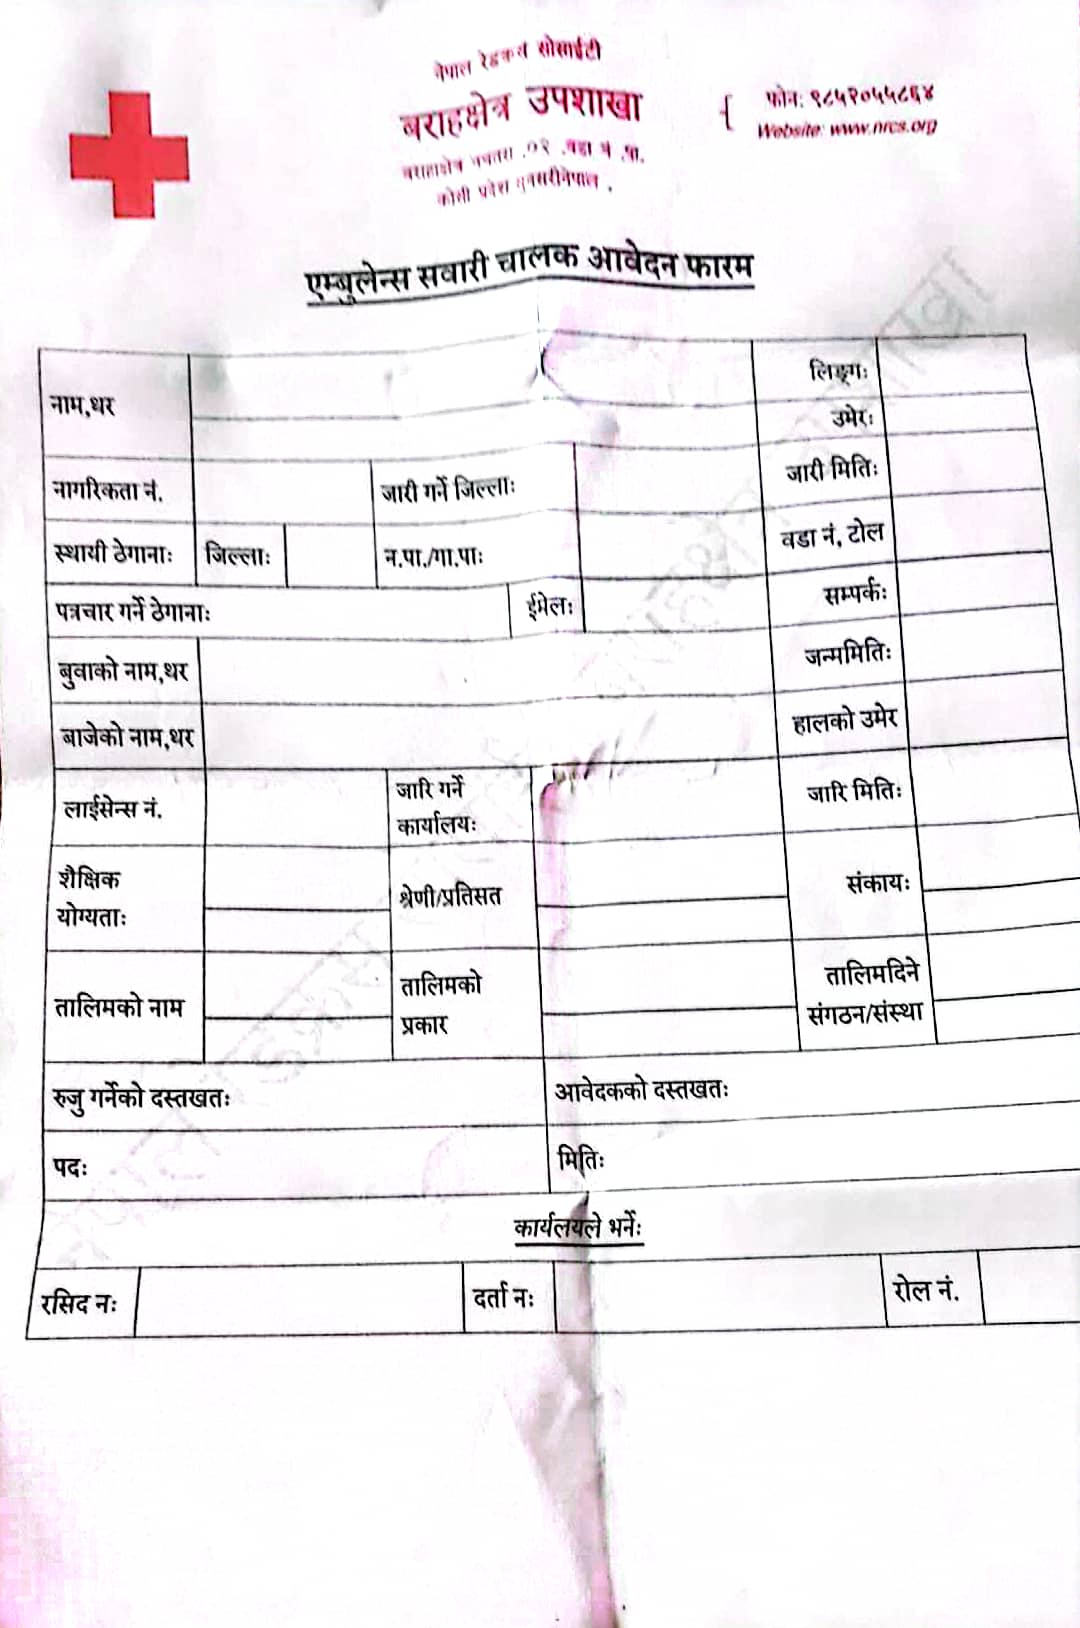 नेपाल रेडक्रस सोसाईटी
बराहक्षेत्र उपशाखा
फोन: ९८५२०५५८६४
Website: www.nrcs.org
कोसी प्रदेश
एम्बुलेन्स सवारी चालक आवेदन फारम
नाम,थर
लिङ्गः
उमेरः
नागरिकता नं.
जारी गर्ने जिल्लाः
जारी मितिः
स्थायी ठेगानाः
जिल्लाः
न.पा./गा.पाः
वडा नं, टोल
पत्रचार गर्ने ठेगानाः
ईमेलः
सम्पर्कः
बुवाको नाम,थर
जन्ममितिः
बाजेको नाम,थर
हालको उमेर
लाईसेन्स नं.
जारि गर्ने
कार्यालयः
जारि मितिः
शैक्षिक
योग्यताः
श्रेणी/प्रतिसत
संकायः
तालिमको नाम
तालिमको
प्रकार
तालिमदिने
संगठन/संस्था
रुजु गर्नेको दस्तखतः
आवेदकको दस्तखतः
पदः
मितिः
कार्यलयले भर्नेः
रसिद नः
दर्ता नः
रोल नं.